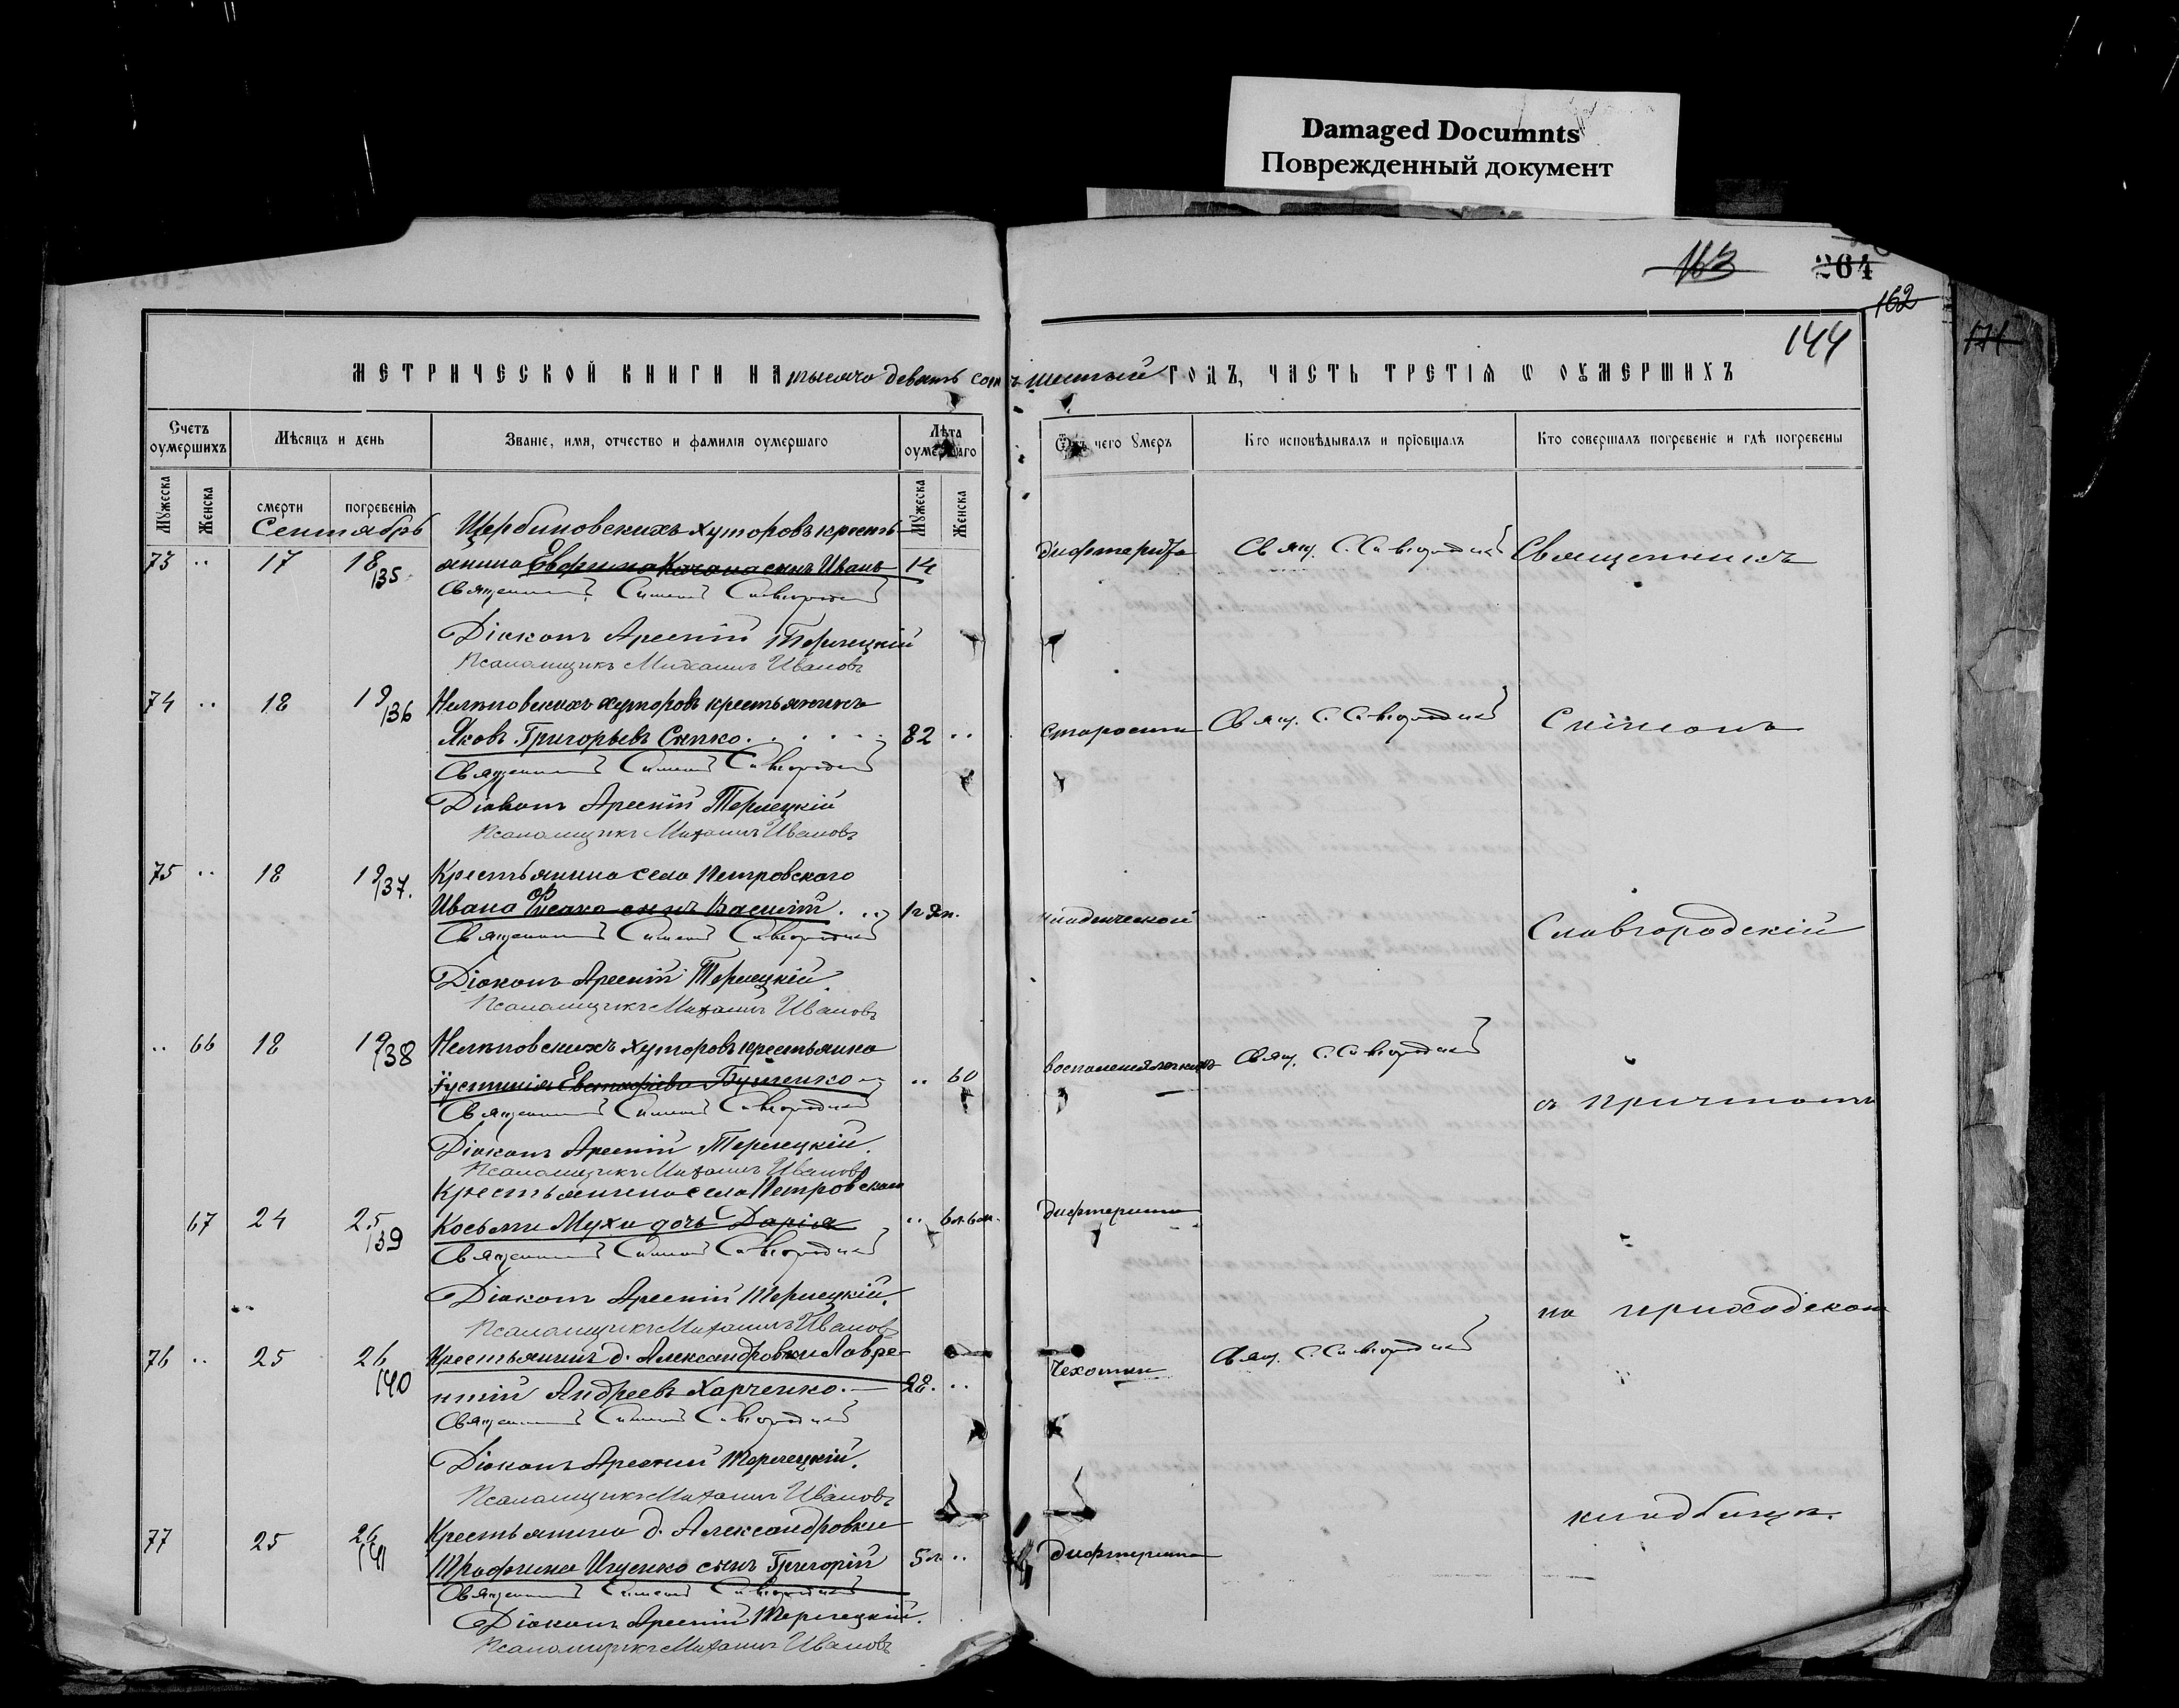 Damaged Documnts
Поврежденный документ
163
264
162
144
МЕТРИЧЕСКОЙ КНИГИ НА тысяча девять сотъ шестый ГОДЪ, ЧАСТЬ ТРЕТІЯ Ѡ ОУМЕРШИХЪ
Счетъ оумершихъ
Мѣсяцъ и день
Званіе, имя, отчество и фамилія оумершаго
Лѣта оумершаго
Ѿ чего оумеръ
Кто исповѣдывалъ и пріобщалъ
Кто совершалъ погребеніе и гдѣ погребены
Мужеска
Женска
смерти
погребенія
Мужеска
Женска
Сентябрь
Щербиновскихъ хуторовъ кресть-
73 .. 17 18 135 янина Евфима Качана сынъ Иванъ 14 дифтерита Свящ. С. Славгородскій Священникъ
Священникъ Симеонъ Славгородскій
Діаконъ Арсеній Терлецкій
Псаломщикъ Михаилъ Ивановъ
74 .. 18 19 136 Нелѣповскихъ хуторовъ крестьянинъ
Яковъ Григорьевъ Сипко 82 .. старости Свящ. С. Славгородскій Сѵмеонъ
Священникъ Симеонъ Славгородскій
Діаконъ Арсеній Терлецкій
Псаломщикъ Михаилъ Ивановъ
75 .. 18 19 137. Крестьянина села Петровского
Ивана сынъ Василій младенческой Славгородскій
Священникъ Симеонъ Славгородскій
Діаконъ Арсеній Терлецкій.
Псаломщикъ Михаилъ Ивановъ
.. 66 18 19 138 Нелѣповскихъ хуторовъ крестьянка
Іустинія Евстафіева Бутенко .. 60 воспаленія легкихъ Свящ. С. Славгородскій съ причтомъ
Священникъ Симеонъ Славгородскій
Діаконъ Арсеній Терлецкій.
Псаломщикъ Михаилъ Ивановъ
Крестьянина села Петровскаго
67 24 25 139 Косьмы Мухи дочь Дарія .. 6л. 6м. дифтерита
Священникъ Симеонъ Славгородскій
Діаконъ Арсеній Терлецкій. на приходскомъ
Псаломщикъ Михаилъ Ивановъ
76 .. 25 26 140 Крестьянинъ д. Александровки Лавре-
нтій Андреевъ Харченко. 28. .. Чехотки Свящ. С. Славгородскій
Священникъ Симеонъ Славгородскій
Діаконъ Арсеній Терлецкій.
Псаломщикъ Михаилъ Ивановъ
77 25 26 141 Крестьянина д. Александровки кладбищѣ.
Трофима Ищенко сынъ Григорій 5л. .. дифтерита
Священникъ Симеонъ Славгородскій
Діаконъ Арсеній Терлецкій.
Псаломщикъ Михаилъ Ивановъ